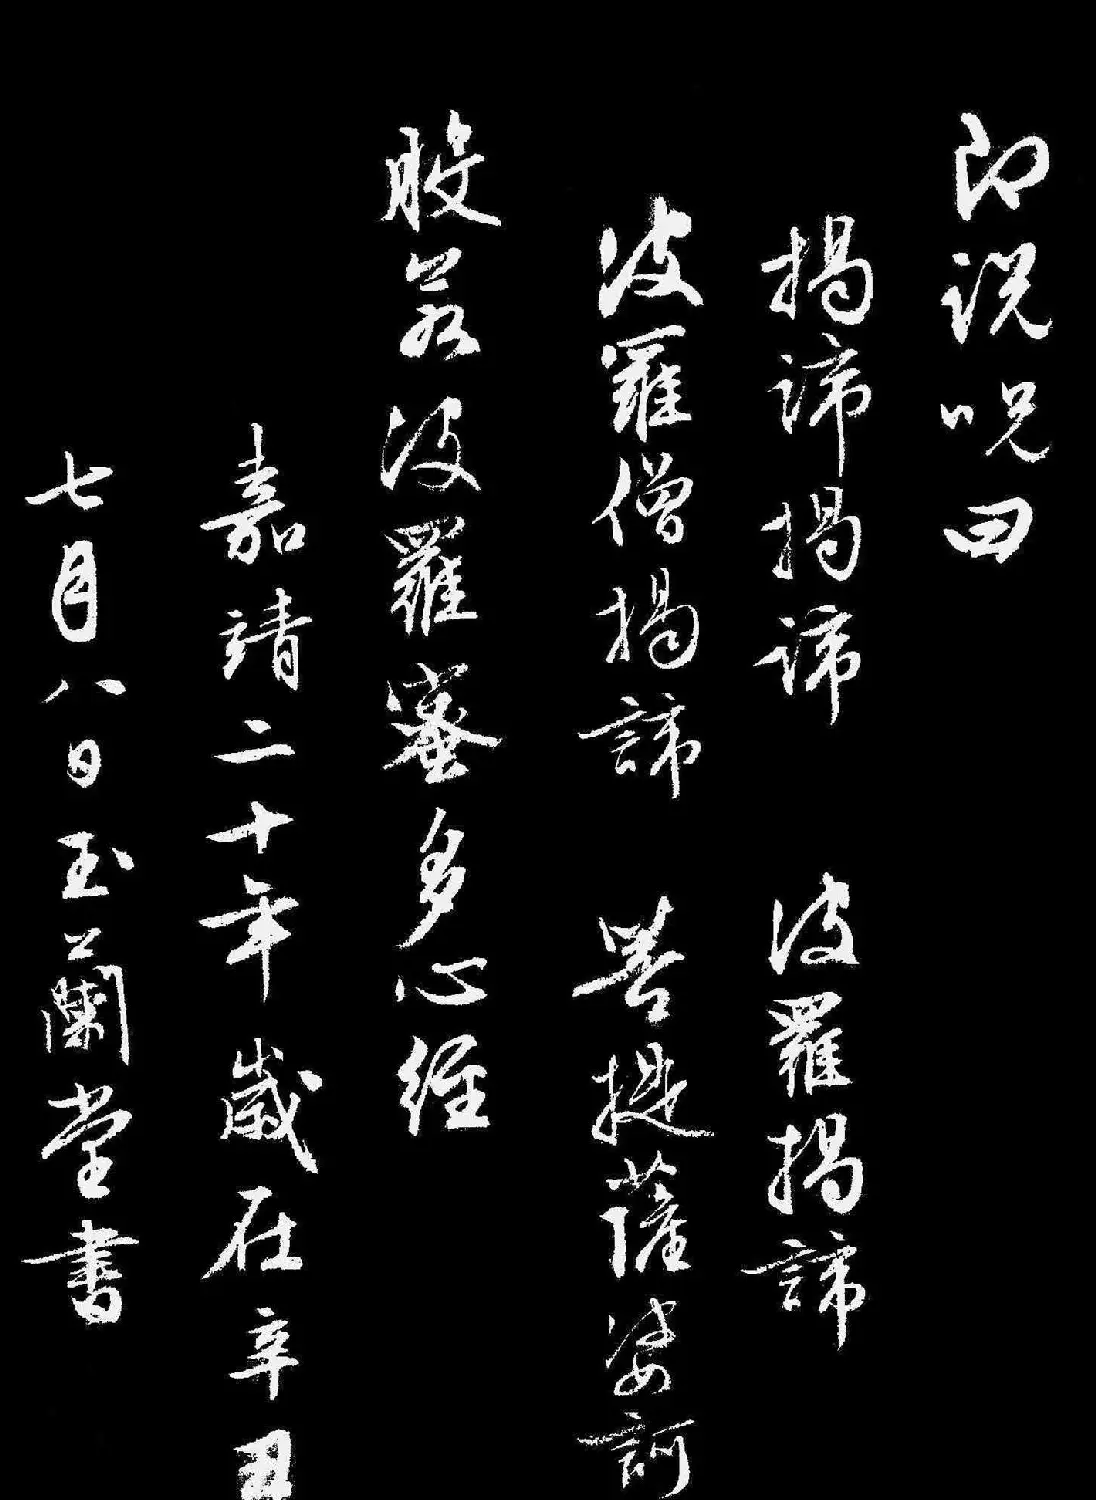 即說咒曰
揭諦揭諦 波羅揭諦
波羅僧揭諦 菩提薩婆訶
般若波羅蜜多心經
嘉靖二十年歲在辛丑
七月八日玉蘭堂書